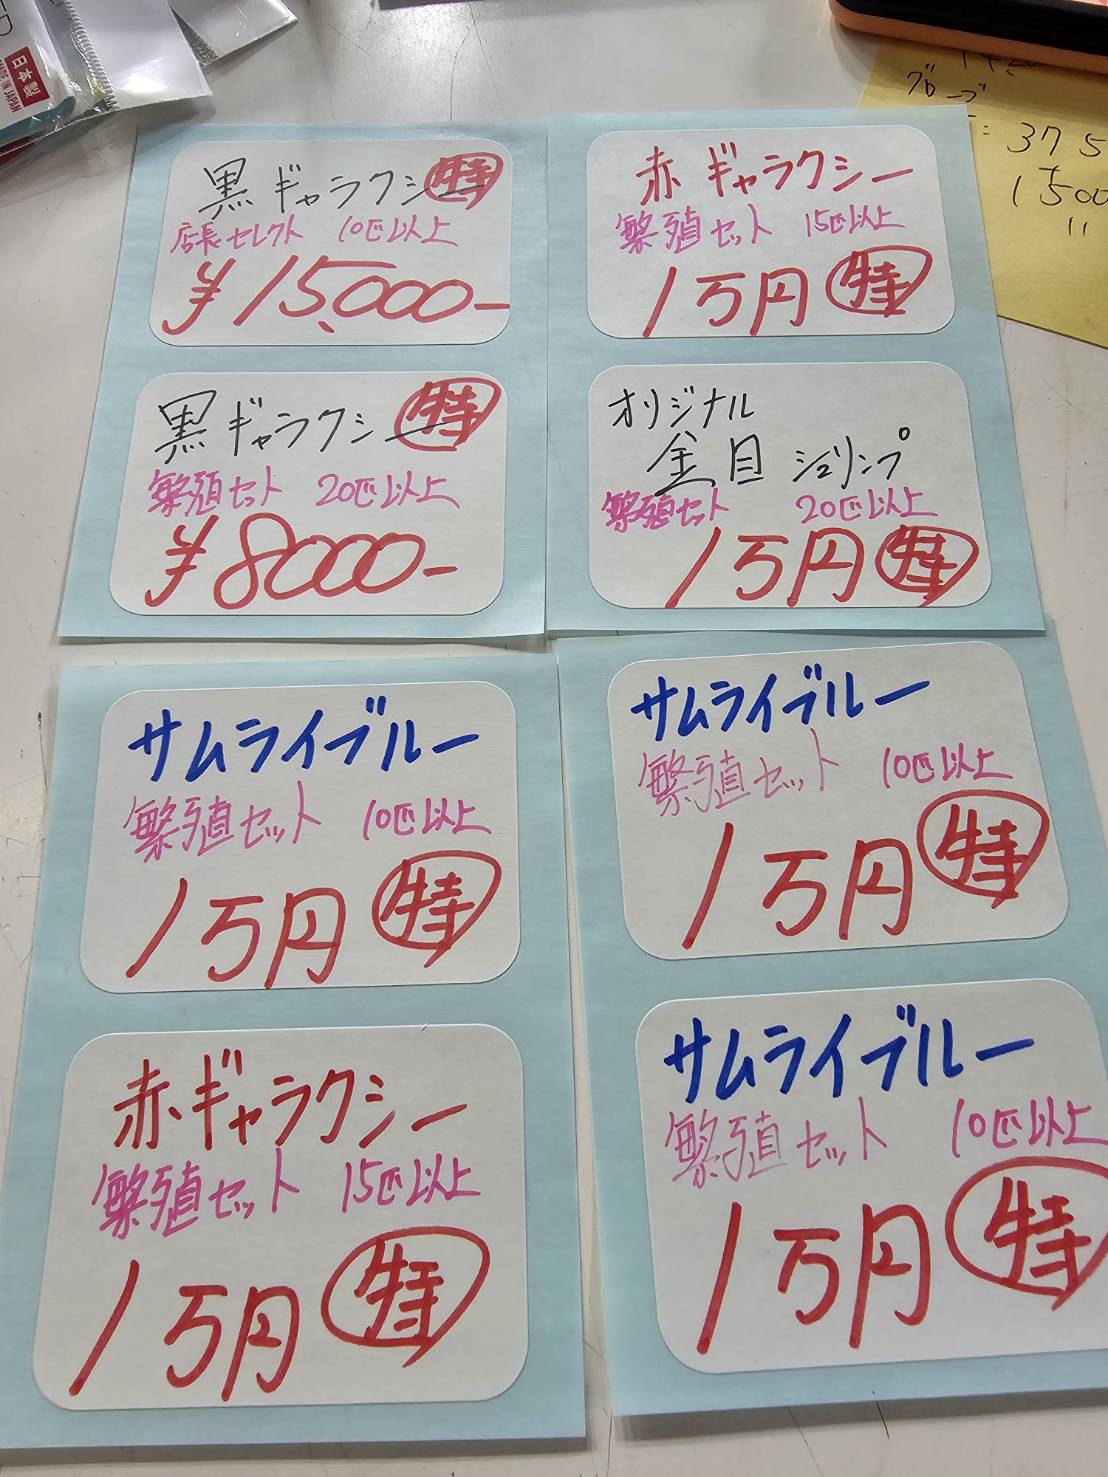 日本製
MADE IN JAPAN
グローブ
375
1500
〃
黒ギャラクシー 特
店長セレクト 10匹以上
¥15,000-
赤ギャラクシー
繁殖セット 15匹以上
1万円 特
黒ギャラクシー 特
繁殖セット 20匹以上
¥8000-
オリジナル
金目シュリンプ
繁殖セット 20匹以上
1万円 特
サムライブルー
繁殖セット 10匹以上
1万円 特
サムライブルー
繁殖セット 10匹以上
1万円 特
赤ギャラクシー
繁殖セット 15匹以上
1万円 特
サムライブルー
繁殖セット 10匹以上
1万円 特